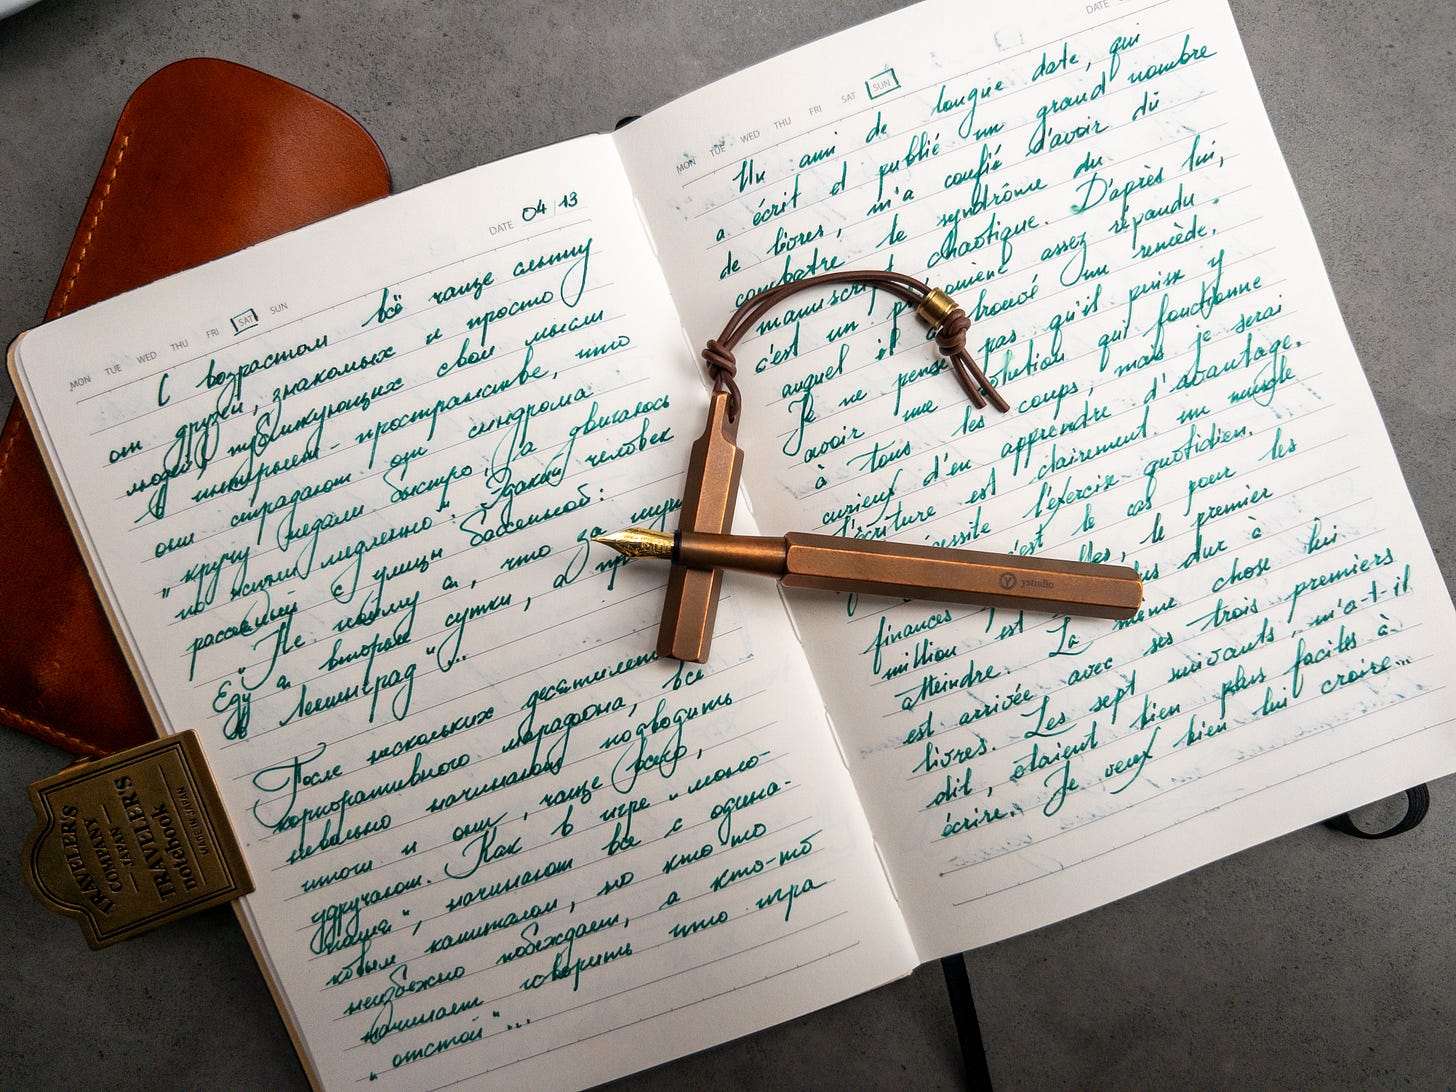 DATE 04 / 13
MON TUE WED THU FRI SAT SUN
С возрастом всё чаще слышу
от друзей, знакомых и просто
людей, публикующих свои мысли
в интернет-пространстве, что
они страдают от синдрома
"круchу педали быстро, а двигаюсь
по жизни медленно". Эдакий человек
рассеянный с улицы Бассейной:
"Еду я, что за
вторые сутки, а
Ленинград"...
После нескольких десятилетий
корпоративного марафона, все
невольно начинают подводить
итоги и они, чаще всего,
удручают. Как в игре "моно-
полия", начинают все с одина-
ковым капиталом, но кто то
неизбежно побеждает, а кто-то
начинает говорить что игра
"отстой"...
DATE
MON TUE WED THU FRI SAT SUN
Un ami de longue date, qui
a écrit et publié un grand nombre
de livres, m'a confié d'avoir dû
combatre le syndrôme du
manuscrit chaotique. D'après lui,
c'est un assez répandu
auquel il a trouvé un remède.
Je ne pense pas qu'il puisse y
avoir une solution qui fonctionne
à tous les coups, mais je serai
curieux d'en apprendre d'avantage.
L'écriture est clairement un muscle
l'exercice quotidien.
c'est le cas pour les
finances le premier
million est dur à
atteindre. La même chose lui
est arrivée avec ses trois premiers
livres. Les sept suivants, m'a-t-il
dit, étaient bien plus faciles à
écrire. Je veux bien lui croire...
ystudio
TRAVELER'S
COMPANY
JAPAN
TRAVELER'S
notebook
MADE IN JAPAN